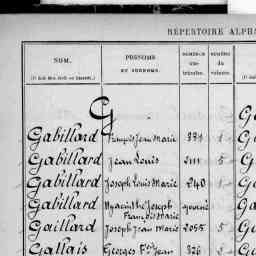 RÉPERTOIRE ALPHA
NOM. PRÉNOMS ET SURNOMS. NUMÉROS matricules. NUMÉRO du volume.
G
Gabillard François Jean Marie 881 1
Gabillard Jean Louis 2111 5
Gabillard Joseph Louis Marie 240 1
Gabillard Hyacinthe Joseph
François Marie
Gaillard Joseph Jean Marie 2055 5
Gallais Georges 826 2